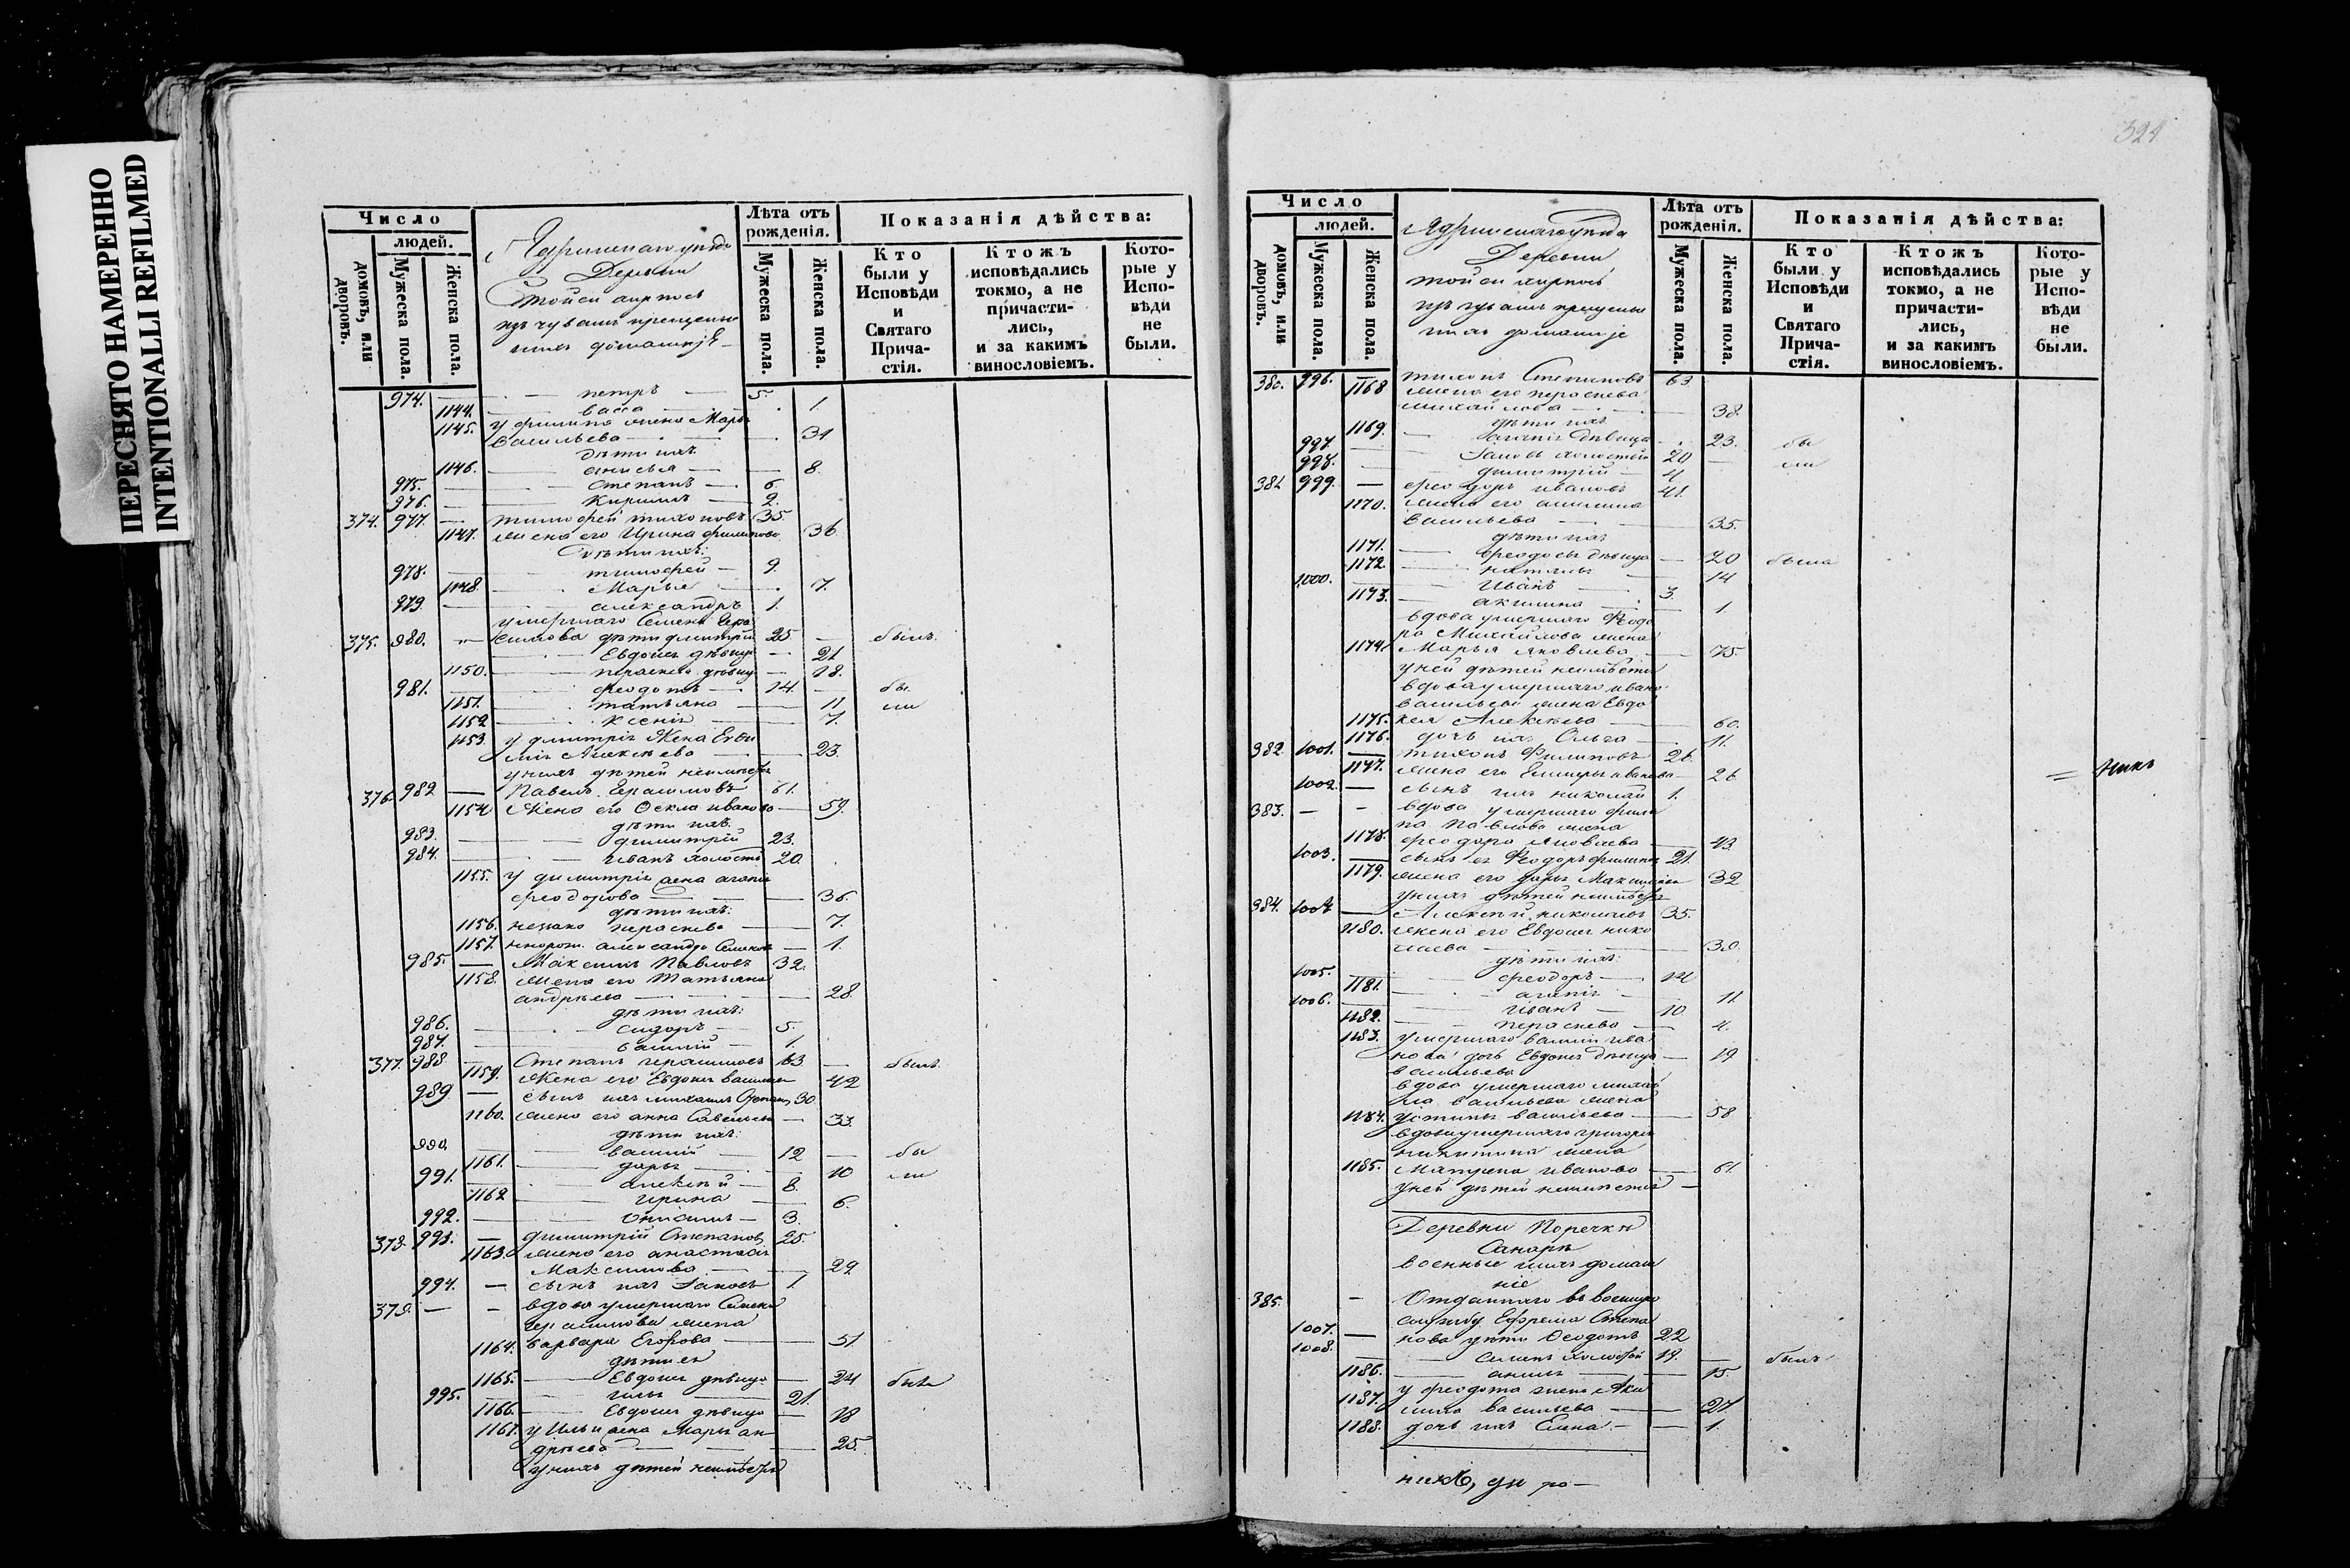 ПЕРЕСНЯТО НАМЕРЕННО
INTENTIONALLI REFILMED
Число
людей.
домовъ, или дворовъ.
Мужеска пола.
Женска пола.
Деревни
изъ чувашъ крещеныи
Лѣта отъ рожденія.
Мужеска пола.
Женска пола.
Показанія дѣйства:
Кто были у Исповѣди и Святаго Причастія.
Ктожъ исповѣдались токмо, а не причастились, и за какимъ винословіемъ.
Которые у Исповѣди не были.
974. — петръ — 5.
1144. васса 1.
1145. у филипа жена Марья
Васильева — 31
дѣти ихъ
1146. анисья — 8.
975. — степанъ — 6.
976. — Кирилъ — 2.
374. 977. — тимофей тихоновъ 35.
1147. жена его Ирина филипова 36
дѣти ихъ:
978. тимофей — 9.
1148. Марья — 7.
979. — александръ 1.
умершаго Семена Гера
375. 980. симова дѣти димитрій 25 — былъ.
Евдокія дѣвица — 21
1150. параскева дѣвица — 18.
981. феодотъ — 14. — бы
1151. татьяна — 11 ли
1152 Ксенія — 7.
1153. у димитрія жена Евѳи
мія Алексѣева 23.
у нихъ дѣтей неимѣется
376. 982 — Павелъ Герасимовъ 61.
1154 Жена его Ѳекла иванова — 59.
дѣти ихъ:
983. — димитрій 23.
984. — иванъ холостъ 20.
1155. у димитрія жена агапія
феодорова — 36.
дѣти ихъ:
1156. параскева 7.
1157. 1.
985. — Максимъ Павловъ 32.
1158. жена его Татьяна
андрѣева — 28.
дѣти ихъ:
986. — сидоръ — 5.
987. василій — 1.
377. 988 Степанъ герасимовъ 63 — былъ.
1159. Жена его Евдокія васильева 42
989 — сынъ ихъ михаилъ Степанъ 30
1160. жена его анна Савельева — 33.
дѣти ихъ:
990. василій — 12 — бы
1161. дарья — 10 ли
991. алексѣй — 8.
1162 ирина 6.
992. — онисимъ — 3.
378. 993. — димитрій Степановъ 25.
1163. жена его анастасія
Максимова — 29
994. — сынъ ихъ Іаковъ 1.
379. — — вдова умершаго Семена
герасимова жена
1164. варвара Егорова — 51.
дѣти ея
1165. Евдокія дѣвица — 24 была
995. илья 21.
1166. Евдокія дѣвица — 18
1167. у Ильи жена Марья ан
дрѣева — 25.
у нихъ дѣтей неимѣется
324
Число
людей.
домовъ, или дворовъ.
Мужеска пола.
Женска пола.
Деревни
изъ чувашъ крещеныи
ихъ домашніе
Лѣта отъ рожденія.
Мужеска пола.
Женска пола.
Показанія дѣйства:
Кто были у Исповѣди и Святаго Причастія.
Ктожъ исповѣдались токмо, а не причастились, и за какимъ винословіемъ.
Которые у Исповѣди не были.
380. 996. тихонъ Степановъ 63
1168 жена его параскева
михайлова — 38.
дѣти ихъ
1169. агапія дѣвица — 23. бы
997. Іаковъ холостой 20 ли
998. димитрій 4
381. 999. — феодоръ ивановъ 41.
1170. жена его акилина
васильева 35.
дѣти ихъ
1171. феодосья дѣвица — 20 была
1172. наталья 14
1000. иванъ 3.
1173. акилина — 1.
вдова умершаго Ѳеодо
ра Михайлова жена
1174. Марья яковлева 75.
у ней дѣтей неимѣется
вдова умершаго ивана
васильева жена Евдо
1175. кея Алексѣева — 60.
1176. дочь ихъ Ольга 11.
382. 1001. — тихонъ Филиповъ 26.
1177. жена его иванова — 26
1002. — сынъ ихъ николай 1.
383. — — вдова умершаго фили
па Павлова жена
1178. феодора яковлева 43
1003. сынъ ея Ѳеодоръ филиповъ 21.
1179. жена его дарья Максимова 32
у нихъ дѣтей неимѣется
384. 1004. — Алексѣй николаевъ 35.
1180. жена его Евдокія нико
лаева 30.
дѣти ихъ:
1005. феодоръ — 14
1181. агапія 11.
1006. иванъ — 10
1182. параскева — 4.
1183. умершаго василія ива
нова дочь Евдокія дѣвица — 19
васильева
вдова умершаго михаи
ла васильева жена
1184. устинья васильева — 58
вдова умершаго григорія
никитина жена
1185. Матрена иванова — 61.
у ней дѣтей неимѣется —
Деревни Поречки
военные ихъ домаш
ніе
385. — Отданнаго въ военную
службу Ефрема Степа
1007. — нова дѣти Ѳеодотъ 22
1008. семенъ холостой 19. — былъ
1186. 15.
1187. у феодота жена Аки
лина васильева — 27.
1188. дочь ихъ Елена — 1.